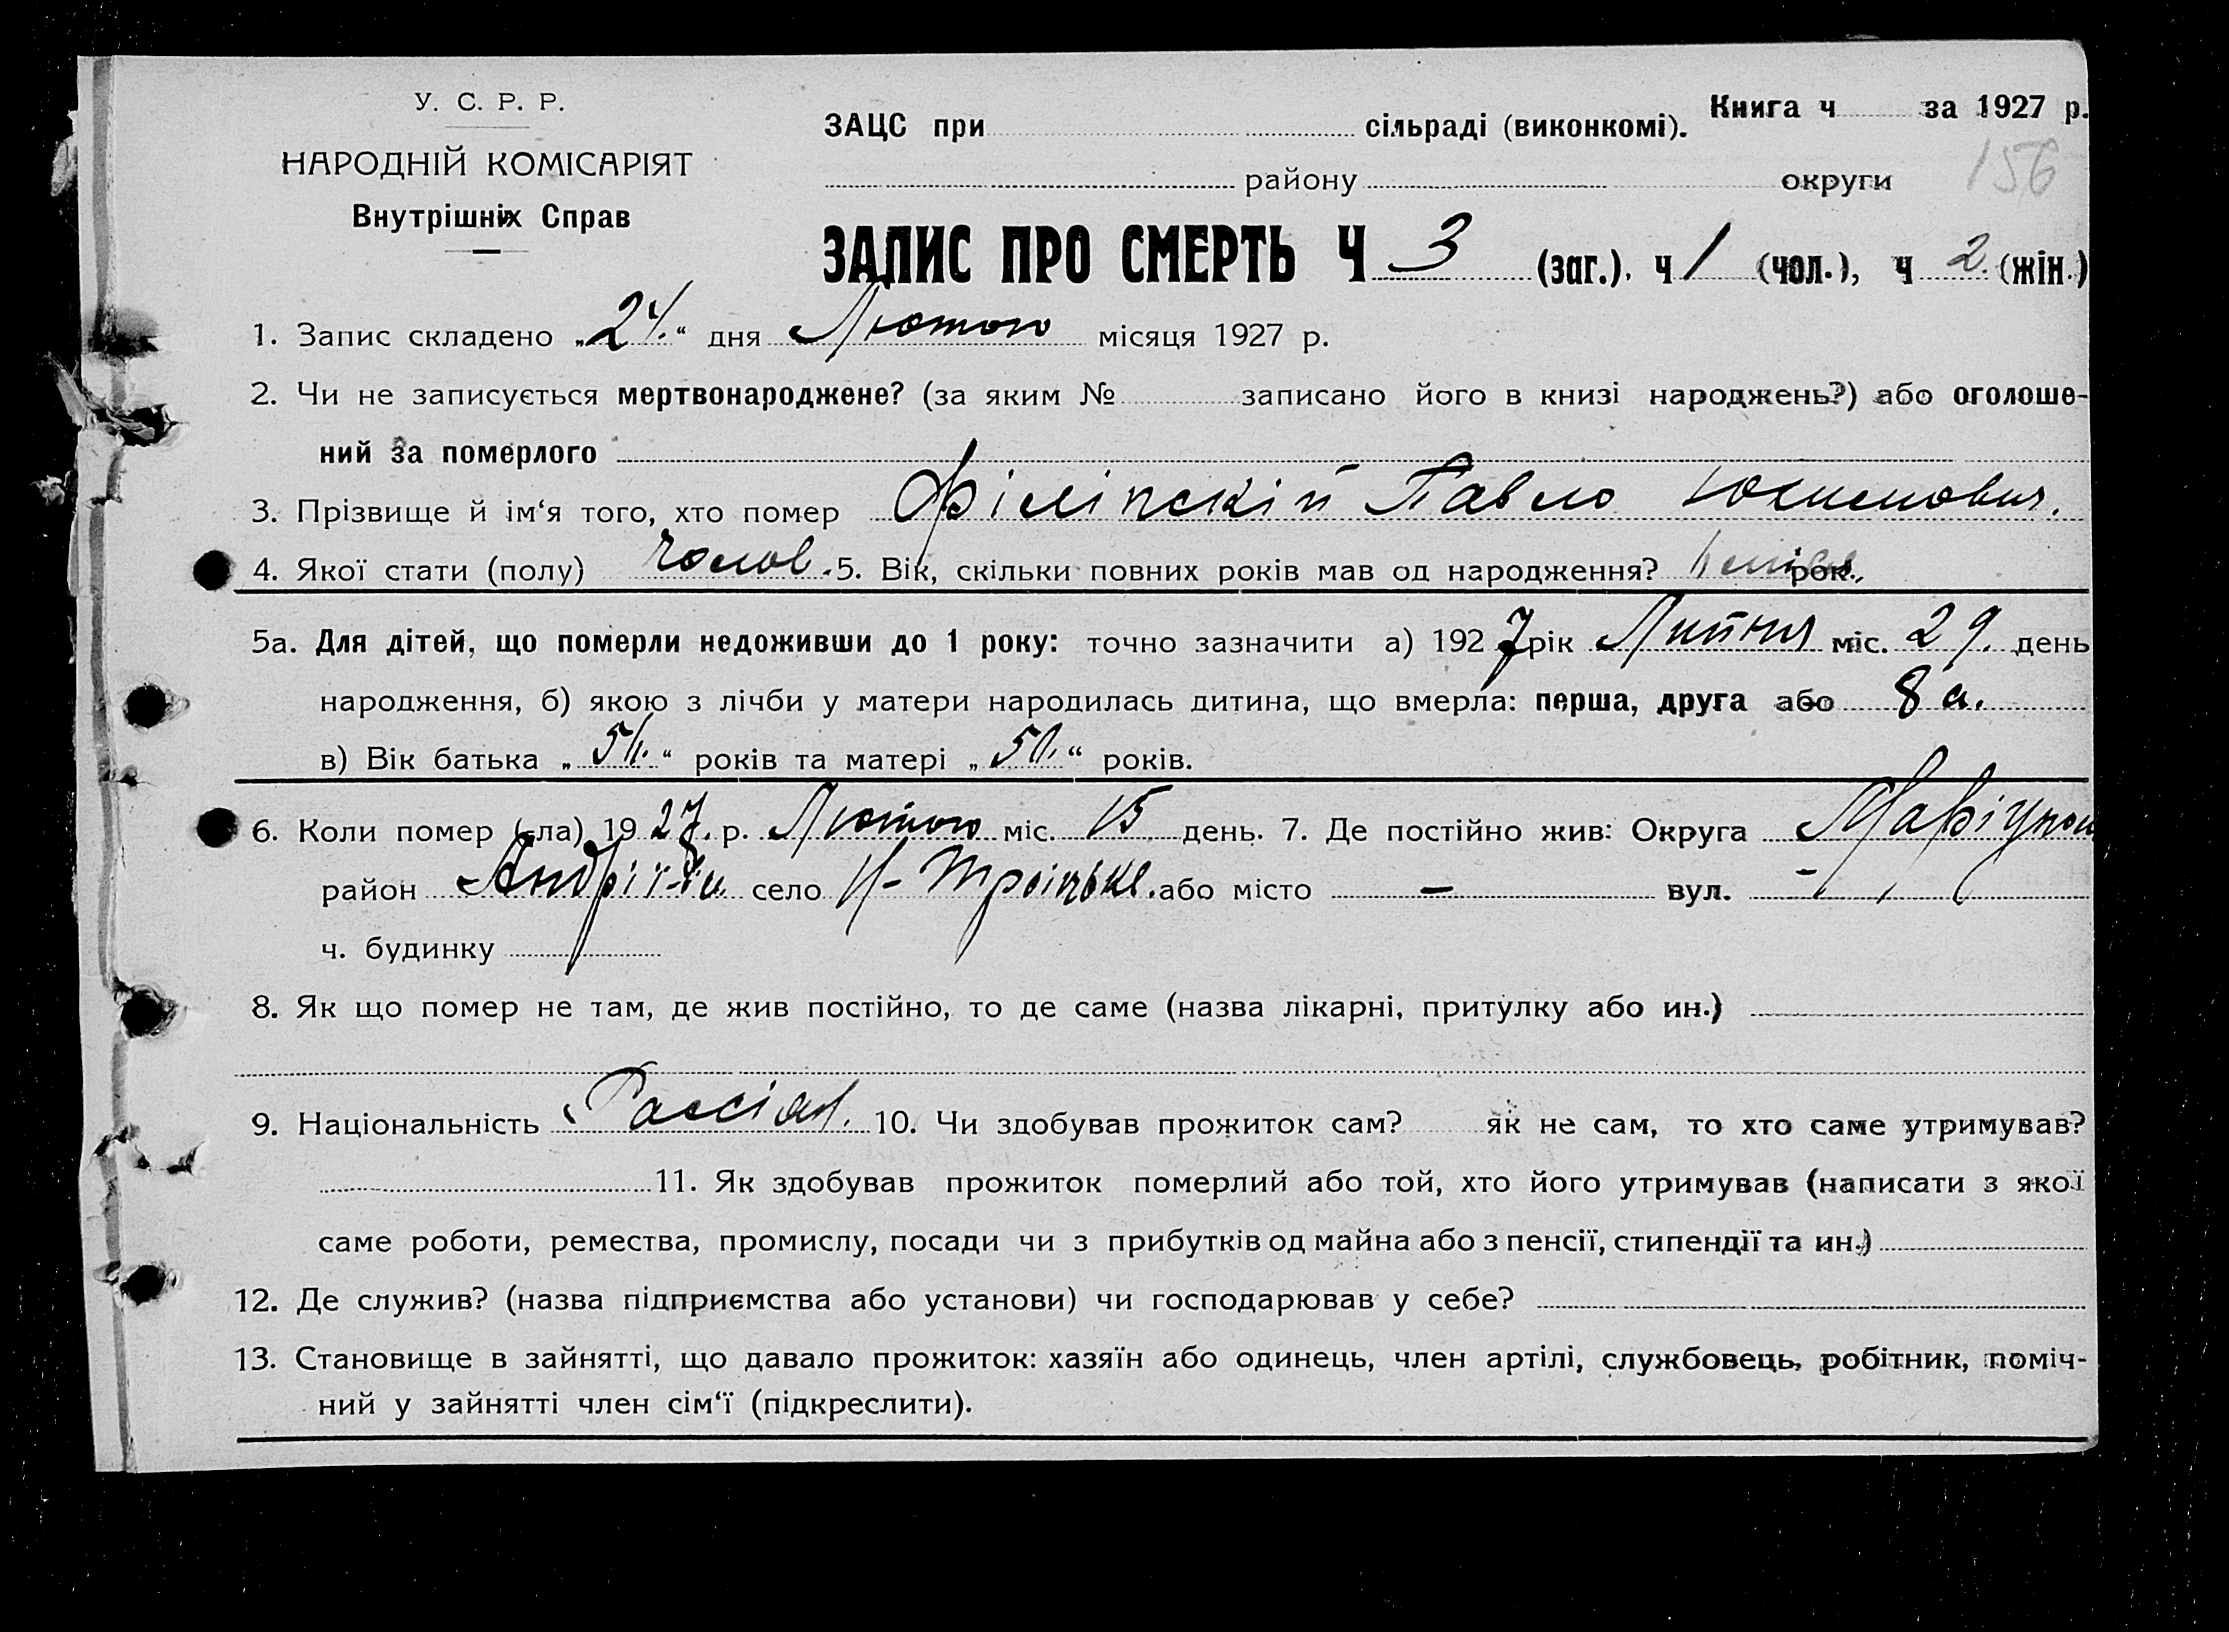 У. С. Р. Р.
НАРОДНІЙ КОМІСАРІЯТ
Внутрішніх Справ
ЗАЦС при сільраді (виконкомі). Книга ч за 1927 р.
району округи 156
ЗАПИС ПРО СМЕРТЬ Ч 3 (заг.), ч 1 (чол.), ч 2. (жін.)
1. Запис складено „24.“ дня Лютого місяця 1927 р.
2. Чи не записується мертвонароджене? (за яким № записано його в книзі народжень?) або оголоше-
ний за померлого
3. Прізвище й ім‘я того, хто помер Філіпскій Павло Юхимович.
4. Якої стати (полу) чолов. 5. Вік, скільки повних років мав од народження? рок.
5а. Для дітей, що померли недоживши до 1 року: точно зазначити а) 1927 рік Липня міс. 29. день
народження, б) якою з лічби у матери народилась дитина, що вмерла: перша, друга або 8 а.
в) Вік батька „ “ років та матері „ “ років.
6. Коли помер (-ла) 1927. р. Лютого міс. 15 день. 7. Де постійно жив: Округа Маріупол
район Андріїв село Н-Троїцьке. або місто — вул. –
ч. будинку
8. Як що помер не там, де жив постійно, то де саме (назва лікарні, притулку або ин.)
9. Національність 10. Чи здобував прожиток сам? як не сам, то хто саме утримував?
11. Як здобував прожиток померлий або той, хто його утримував (написати з якої
саме роботи, ремества, промислу, посади чи з прибутків од майна або з пенсії, стипендії та ин.)
12. Де служив? (назва підприємства або установи) чи господарював у себе?
13. Становище в зайнятті, що давало прожиток: хазяїн або одинець, член артілі, службовець, робітник, поміч-
ний у зайнятті член сім‘ї (підкреслити).